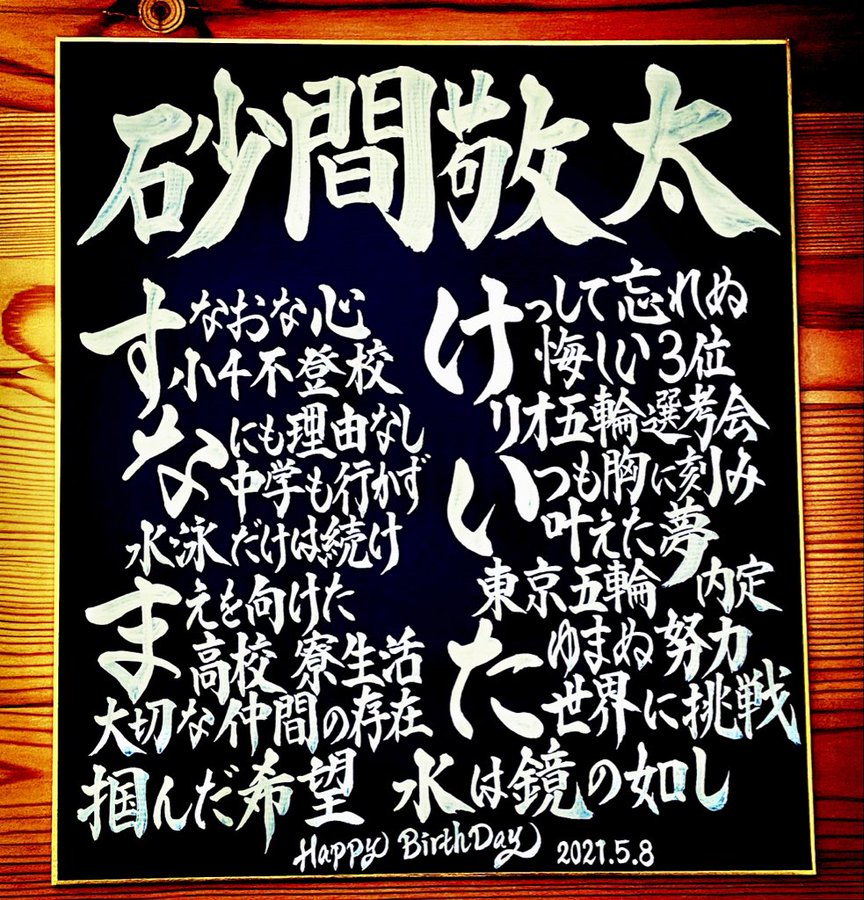 砂間敬太
すなおな心
小4不登校
なにも理由なし
中学も行かず
水泳だけは続け
まえを向けた
高校 寮生活
大切な仲間の存在
けっして忘れぬ
悔しい3位
リオ五輪選考会
いつも胸に刻み
叶えた夢
東京五輪 内定
たゆまぬ努力
世界に挑戦
掴んだ希望 水は鏡の如し
Happy BirthDay 2021.5.8